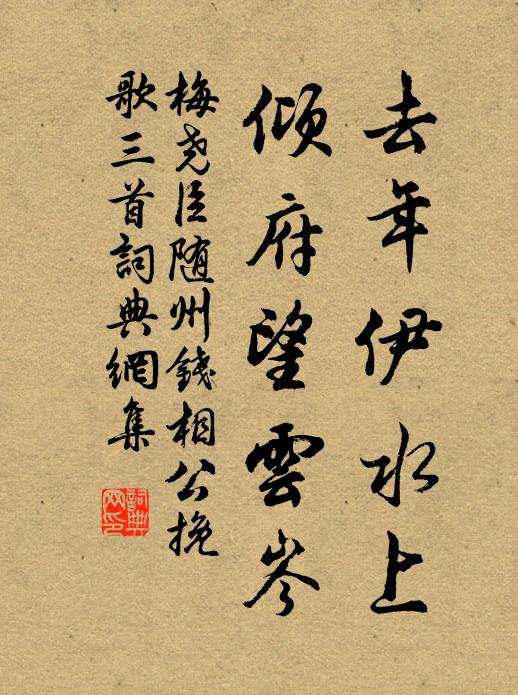 去年伊水上
傾府望雲岑
梅尧臣随州錢相公挽
歌三首詞典網集
詞典
网印